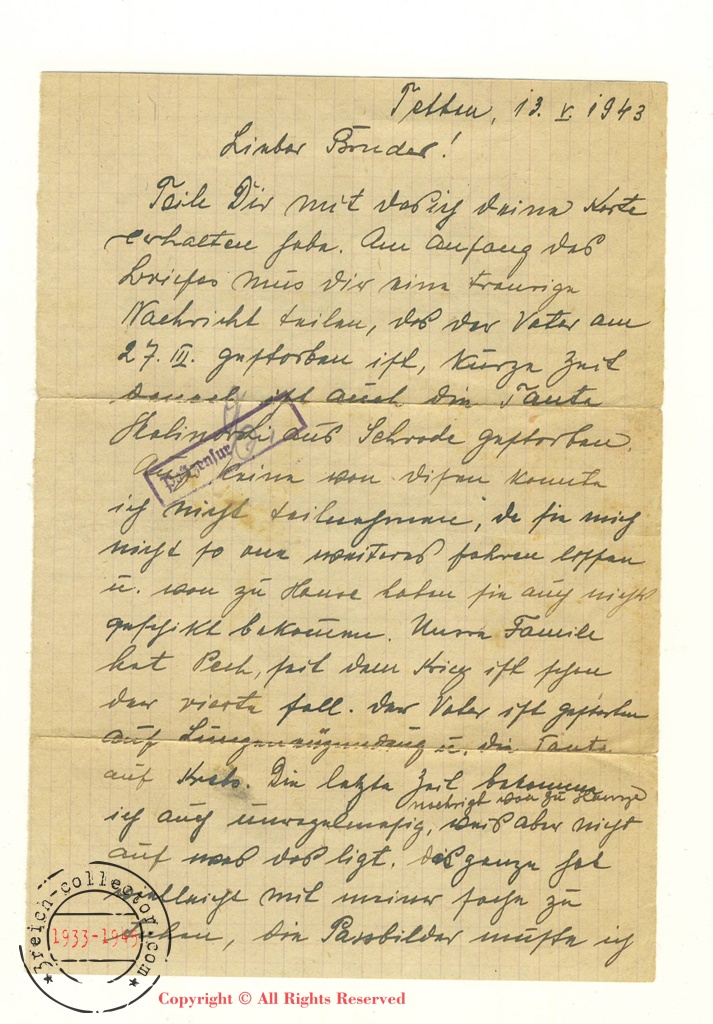 Tetten, 13. V. 1943
Lieber Bruder!
Teile Dir mit das ich deine Karte
erhalten habe. Am anfang des
Briefes mus dir eine traurige
Nachricht teilen, das der Vater am
27. III. gestorben ist, kurze Zeit
danach ist auch die Tante
aus Schrode gestorben.
Prüfzensur
keine von disen konnte
ich nicht teilnehmen, da sie mich
nicht so one weiteres fahren lissen
u. von zu Hause haben sie auch nichts
geschikt bekommen. Unsre Familie
hat Pech, seit dem Krieg ist schon
der vierte fall. Der Vater ist gestorben
auf Lungenenzündung u. die Tante
auf Krebs. Die letzte Zeit bekomme
nachrigt von zu Hause
ich auch unregelmäsig, weis aber nicht
auf was das ligt. Das ganze hat
vielleicht mit meiner sache zu
tuhen, die Passbilder muste ich
3reich-collector.com
1933-1945
Copyright © All Rights Reserved